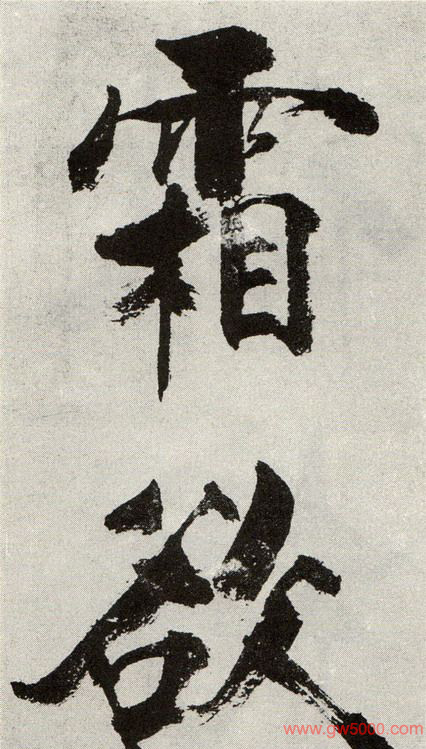 霜
欲
www.gw5000.com